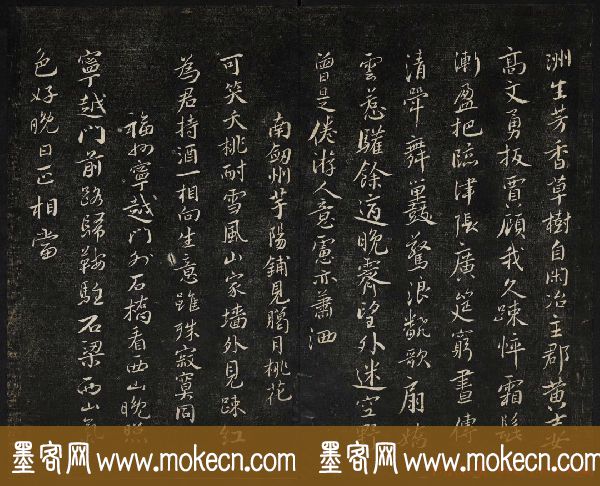 洲生芳香草樹自閑冶主郡黃士安
高文勇扳賈顧我久疎悴霜髭
漸盈把臨津張廣筵窮晝傳
清斝舞鼉驚浪翻歌扇嬌
雲惹驩餘適晚霽望外迷空野
曾是倦游人意慮亦蕭洒
南劔州芋陽鋪見臘月桃花
可笑夭桃耐雪風山家墻外見疎紅
為君持酒一相向生意雖殊寂寞同
福州寧越門外石橋看西山晚照
寧越門前路歸鞍駐石梁西山氣
色好晚日正相當
墨客网 www.mokecn.com 墨客网 www.mokecn.com